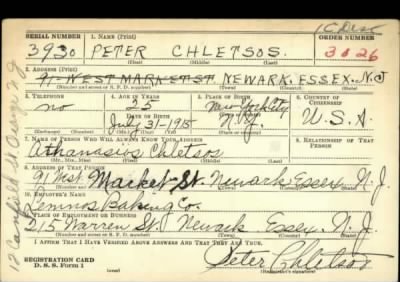 1 C Disc
SERIAL NUMBER 1. NAME (Print) ORDER NUMBER
3930 PETER CHLETSOS. 3026
(First) (Middle) (Last)
2. ADDRESS (Print)
91-WEST MARKET ST NEWARK. ESSEX. N.J
(Number and street or R. F. D. number) (Town) (County) (State)
3. TELEPHONE 4. AGE IN YEARS 5. PLACE OF BIRTH 6. COUNTRY OF CITIZENSHIP
no 25 New York City U.S.A.
DATE OF BIRTH (Town or county)
July 31-1915 N.Y.
(Exchange) (Number) (Mo.) (Day) (Yr.) (State or country)
7. NAME OF PERSON WHO WILL ALWAYS KNOW YOUR ADDRESS 8. RELATIONSHIP OF THAT PERSON
Athanasios Chletsos
(Mr., Mrs., Miss) (First) (Middle) (Last)
9. ADDRESS OF THAT PERSON
91 West Market St. Newark Essex N. J.
(Number and street or R. F. D. number) (Town) (County) (State)
10. EMPLOYER'S NAME
Lemnos Baking Co.
11. PLACE OF EMPLOYMENT OR BUSINESS
215 Warren St. Newark Essex N. J.
(Number and street or R. F. D. number) (Town) (County) (State)
I AFFIRM THAT I HAVE VERIFIED ABOVE ANSWERS AND THAT THEY ARE TRUE.
REGISTRATION CARD
D. S. S. Form 1 (over) Peter Chletsos
(Registrant's signature)